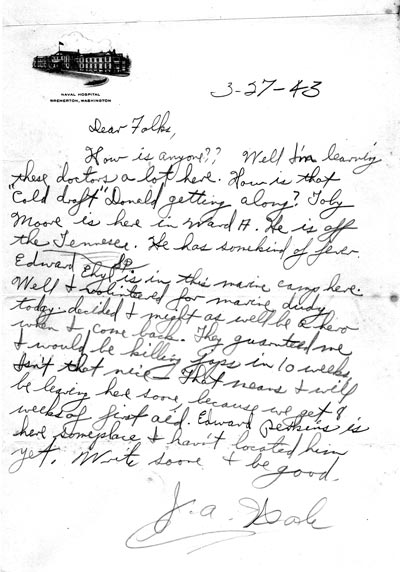 NAVAL HOSPITAL
BREMERTON, WASHINGTON
3-27-43
Dear Folks,
How is anyone?? Well I'm learnin
these doctors a lot here. How is that
"Cold draft" Donald getting along? Toby
Moore is here in ward A. He is off
the Tennesee. He has somekind of fever.
Edward is in this marine camp here.
Well I volintered for marine dudy
today. decided I might as well be a hero
when I come back. They guaranteed me
I would be killing Japs in 10 weeks,
Isn't that nice. That means I will
be leaving here soone, because we get 8
weeks of first aid. Edward Perkins is
here someplace I havn't located him
yet. Write soone, & be good.
J. A.